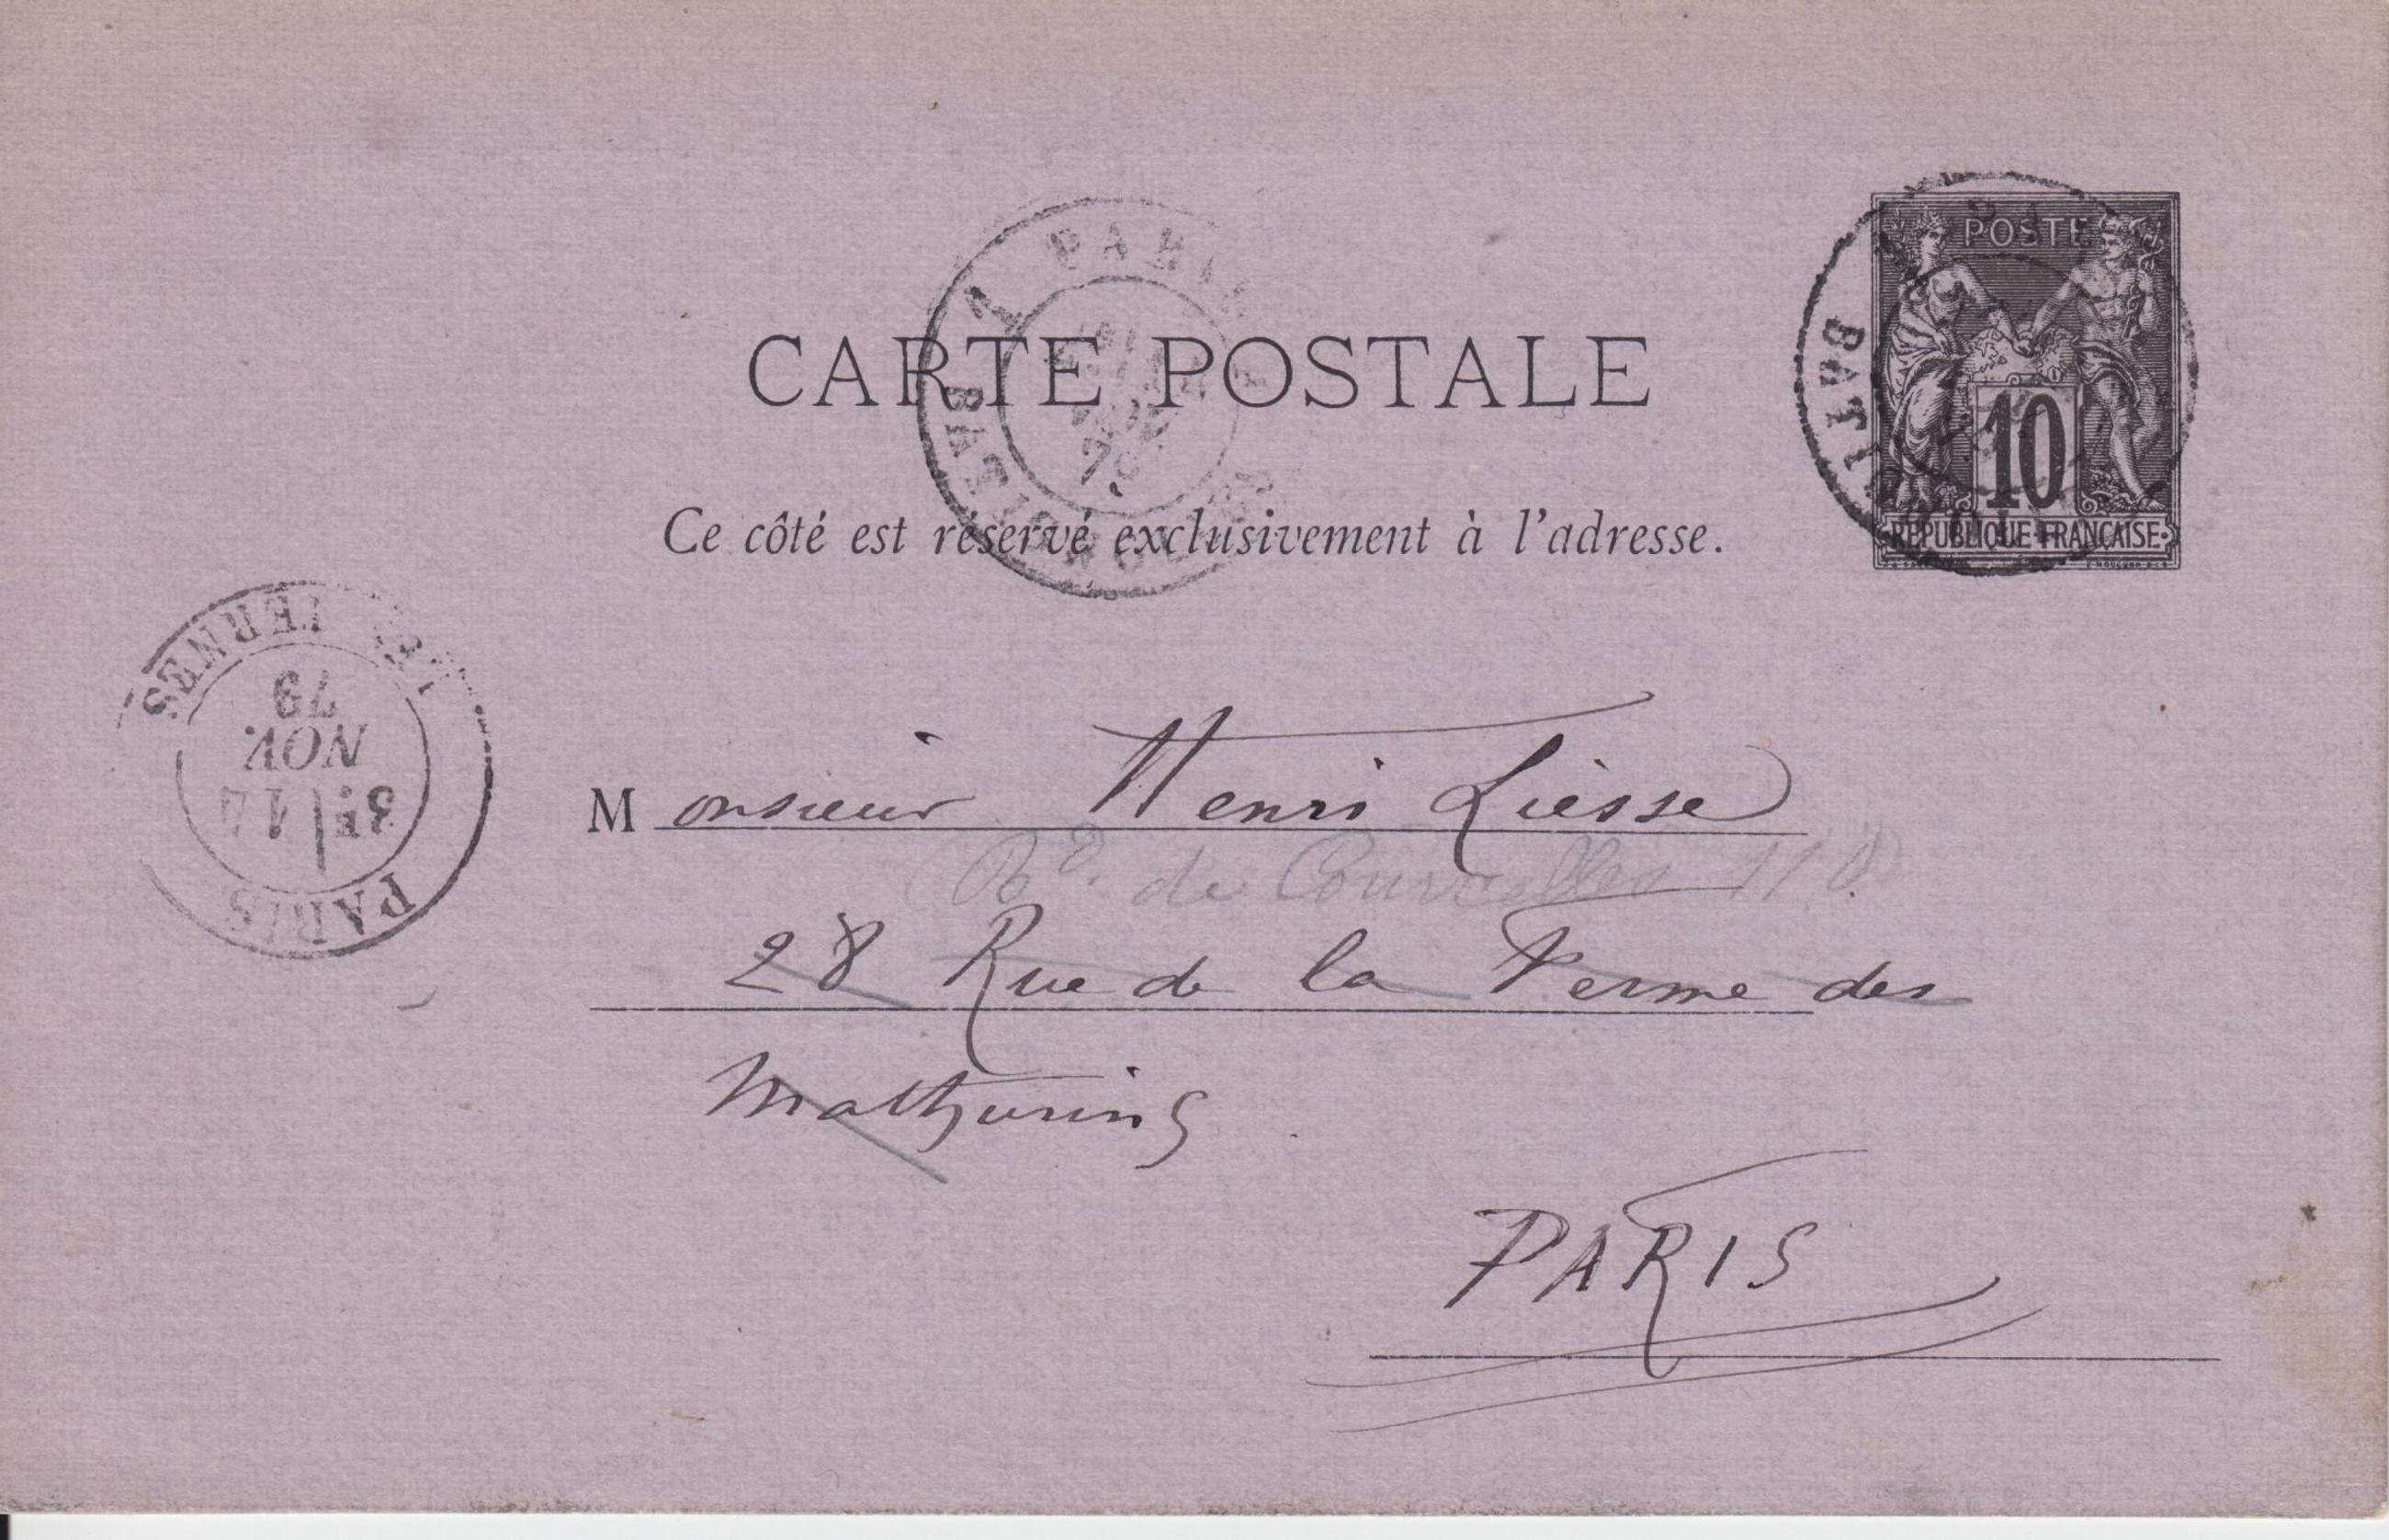 POSTE
10
REPUBLIQUE FRANÇAISE
PARIS
BATIGNOLLES
CARTE POSTALE
Ce côté est réservé exclusivement à l'adresse.
PARIS
LES TERNES
3E | 14
NOV.
79
Monsieur Henri Liesse
Bd. de Courcelles 110
28 Rue de la Ferme des
Mathurins
PARIS